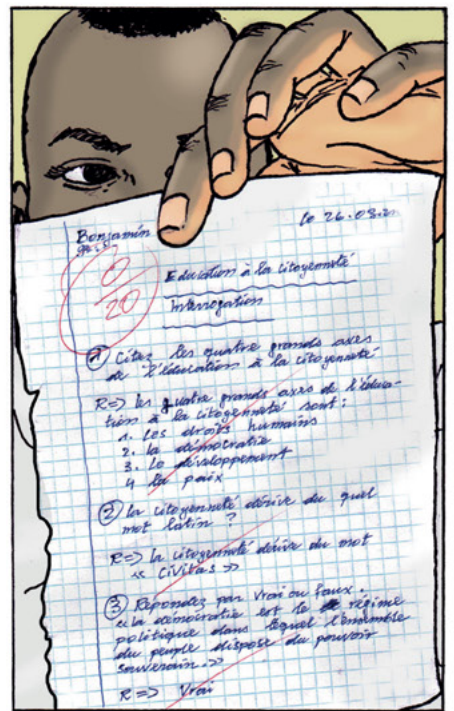 Benjamin
le 26.03.
0/20
Education à la citoyenneté
Interrogation
① Citez les quatre grands axes
de l'éducation à la citoyenneté
R=> les quatre grands axes de l'éduca-
tion à la citoyenneté sont :
1. Les droits humains
2. la démocratie
3. Le développement
4 la paix
② la citoyenneté dérive du quel
mot latin ?
R=> la citoyenneté dérive du mot
« Civitas »
③ Répondez par Vrai ou faux.
« la démocratie est le régime
politique dans lequel l'ensemble
du peuple dispose du pouvoir
souverain. »
R => Vrai